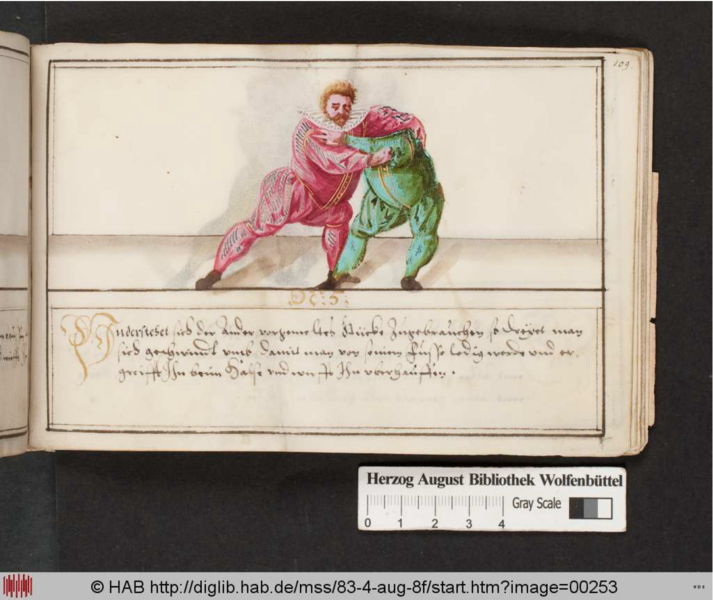 109.
N: 5:
Understehet sich der Ander vorgemeltes Stückh Zugebrauchen so drehet man
sich geschwindt umb damit man von seinem Fusse ledig werde und er-
greifft Ihn beim Halse und Ihn
Herzog August Bibliothek Wolfenbüttel
Gray Scale
0 1 2 3 4
© HAB http://diglib.hab.de/mss/83-4-aug-8f/start.htm?image=00253